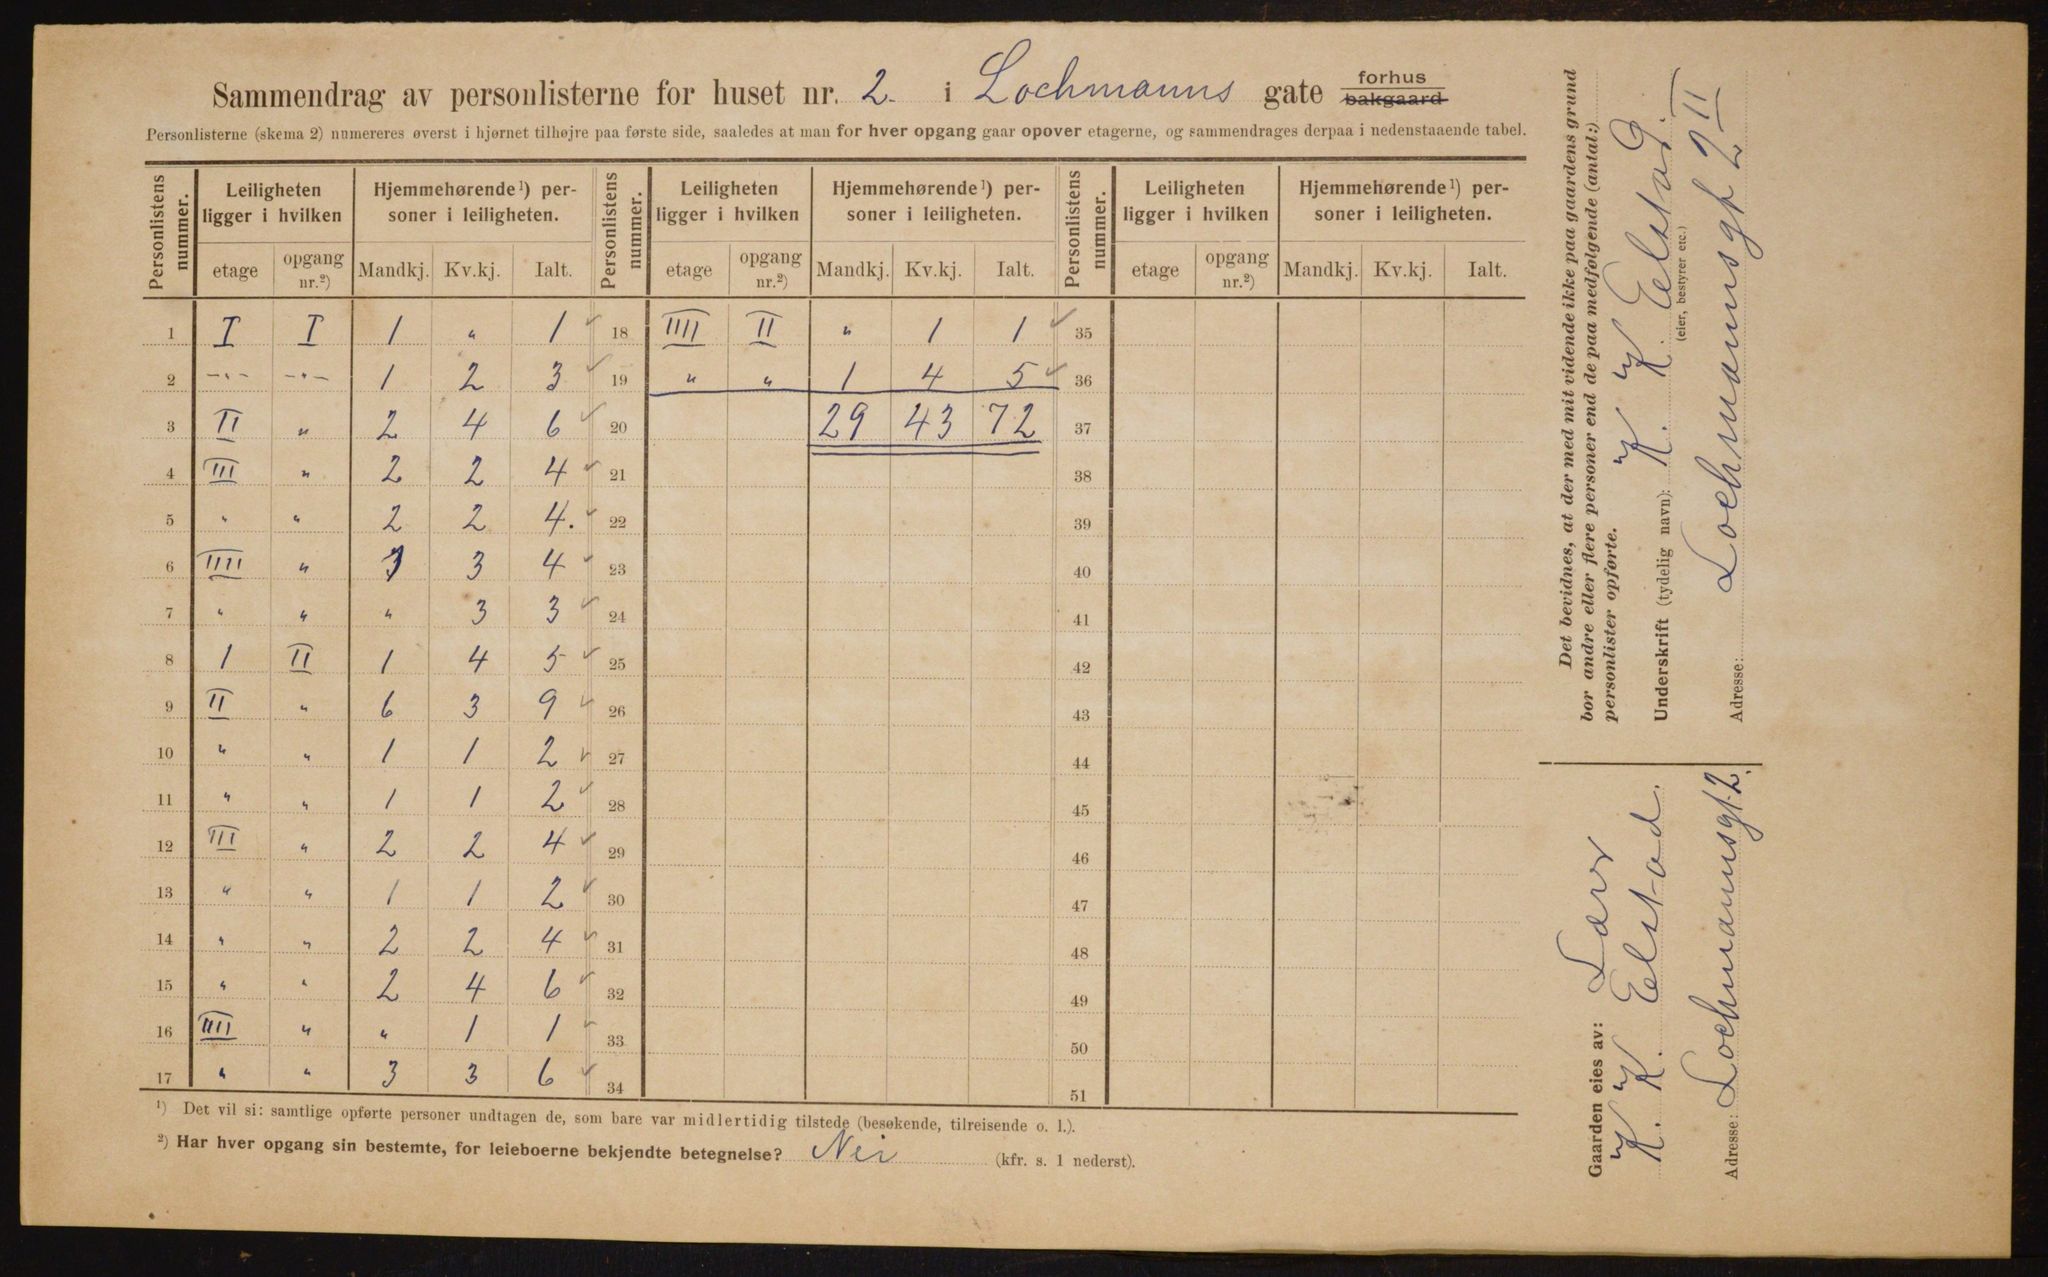 Sammendrag av personlisterne for huset nr. 2. i Lochmanns gate forhus bakgaard
Personlisterne (skema 2) numereres øverst i hjørnet tilhøjre paa første side, saaledes at man for hver opgang gaar opover etagerne, og sammendrages derpaa i nedenstaaende tabel.
Personlistens nummer. Leiligheten ligger i hvilken Hjemmehørende¹) personer i leiligheten. Personlistens nummer. Leiligheten ligger i hvilken Hjemmehørende¹) personer i leiligheten. Personlistens nummer. Leiligheten ligger i hvilken Hjemmehørende¹) personer i leiligheten.
etage opgang nr.²) Mandkj. Kv.kj. Ialt. etage opgang nr.²) Mandkj. Kv.kj. Ialt. etage opgang nr.²) Mandkj. Kv.kj. Ialt.
1 I I 1 " 1 ✓ 18 IIII II " 1 1 ✓ 35
2 -"- -"- 1 2 3 ✓ 19 " " 1 4 5 ✓ 36
3 II " 2 4 6 ✓ 20 29 43 72 37
4 III " 2 2 4 ✓ 21 38
5 " " 2 2 4. ✓ 22 39
6 IIII " 3 4 ✓ 23 40
7 " " " 3 3 ✓ 24 41
8 1 II 1 4 5 ✓ 25 42
9 II " 6 3 9 ✓ 26 43
10 " " 1 1 2 ✓ 27 44
11 " " 1 1 2 ✓ 28 45
12 III " 2 2 4 ✓ 29 46
13 " " 1 1 2 ✓ 30 47
14 " " 2 2 4 ✓ 31 48
15 " " 2 4 6 ✓ 32 49
16 IIII " " 1 1 ✓ 33 50
17 " " 3 3 6 ✓ 34 51
¹) Det vil si: samtlige opførte personer undtagen de, som bare var midlertidig tilstede (besøkende, tilreisende o. l.).
²) Har hver opgang sin bestemte, for leieboerne bekjendte betegnelse? Nei (kfr. s. 1 nederst).
Det bevidnes, at der med mit vidende ikke paa gaardens grund
bor andre eller flere personer end de paa medfølgende (antal:)
personlister opførte.
Underskrift (tydelig navn): K. K. Elstad.
(eier, bestyrer etc.)
Adresse: Lochmannsgt 2 II
Gaarden eies av: Lars
K. K. Elstad.
Adresse: Lochmannsgt. 2.